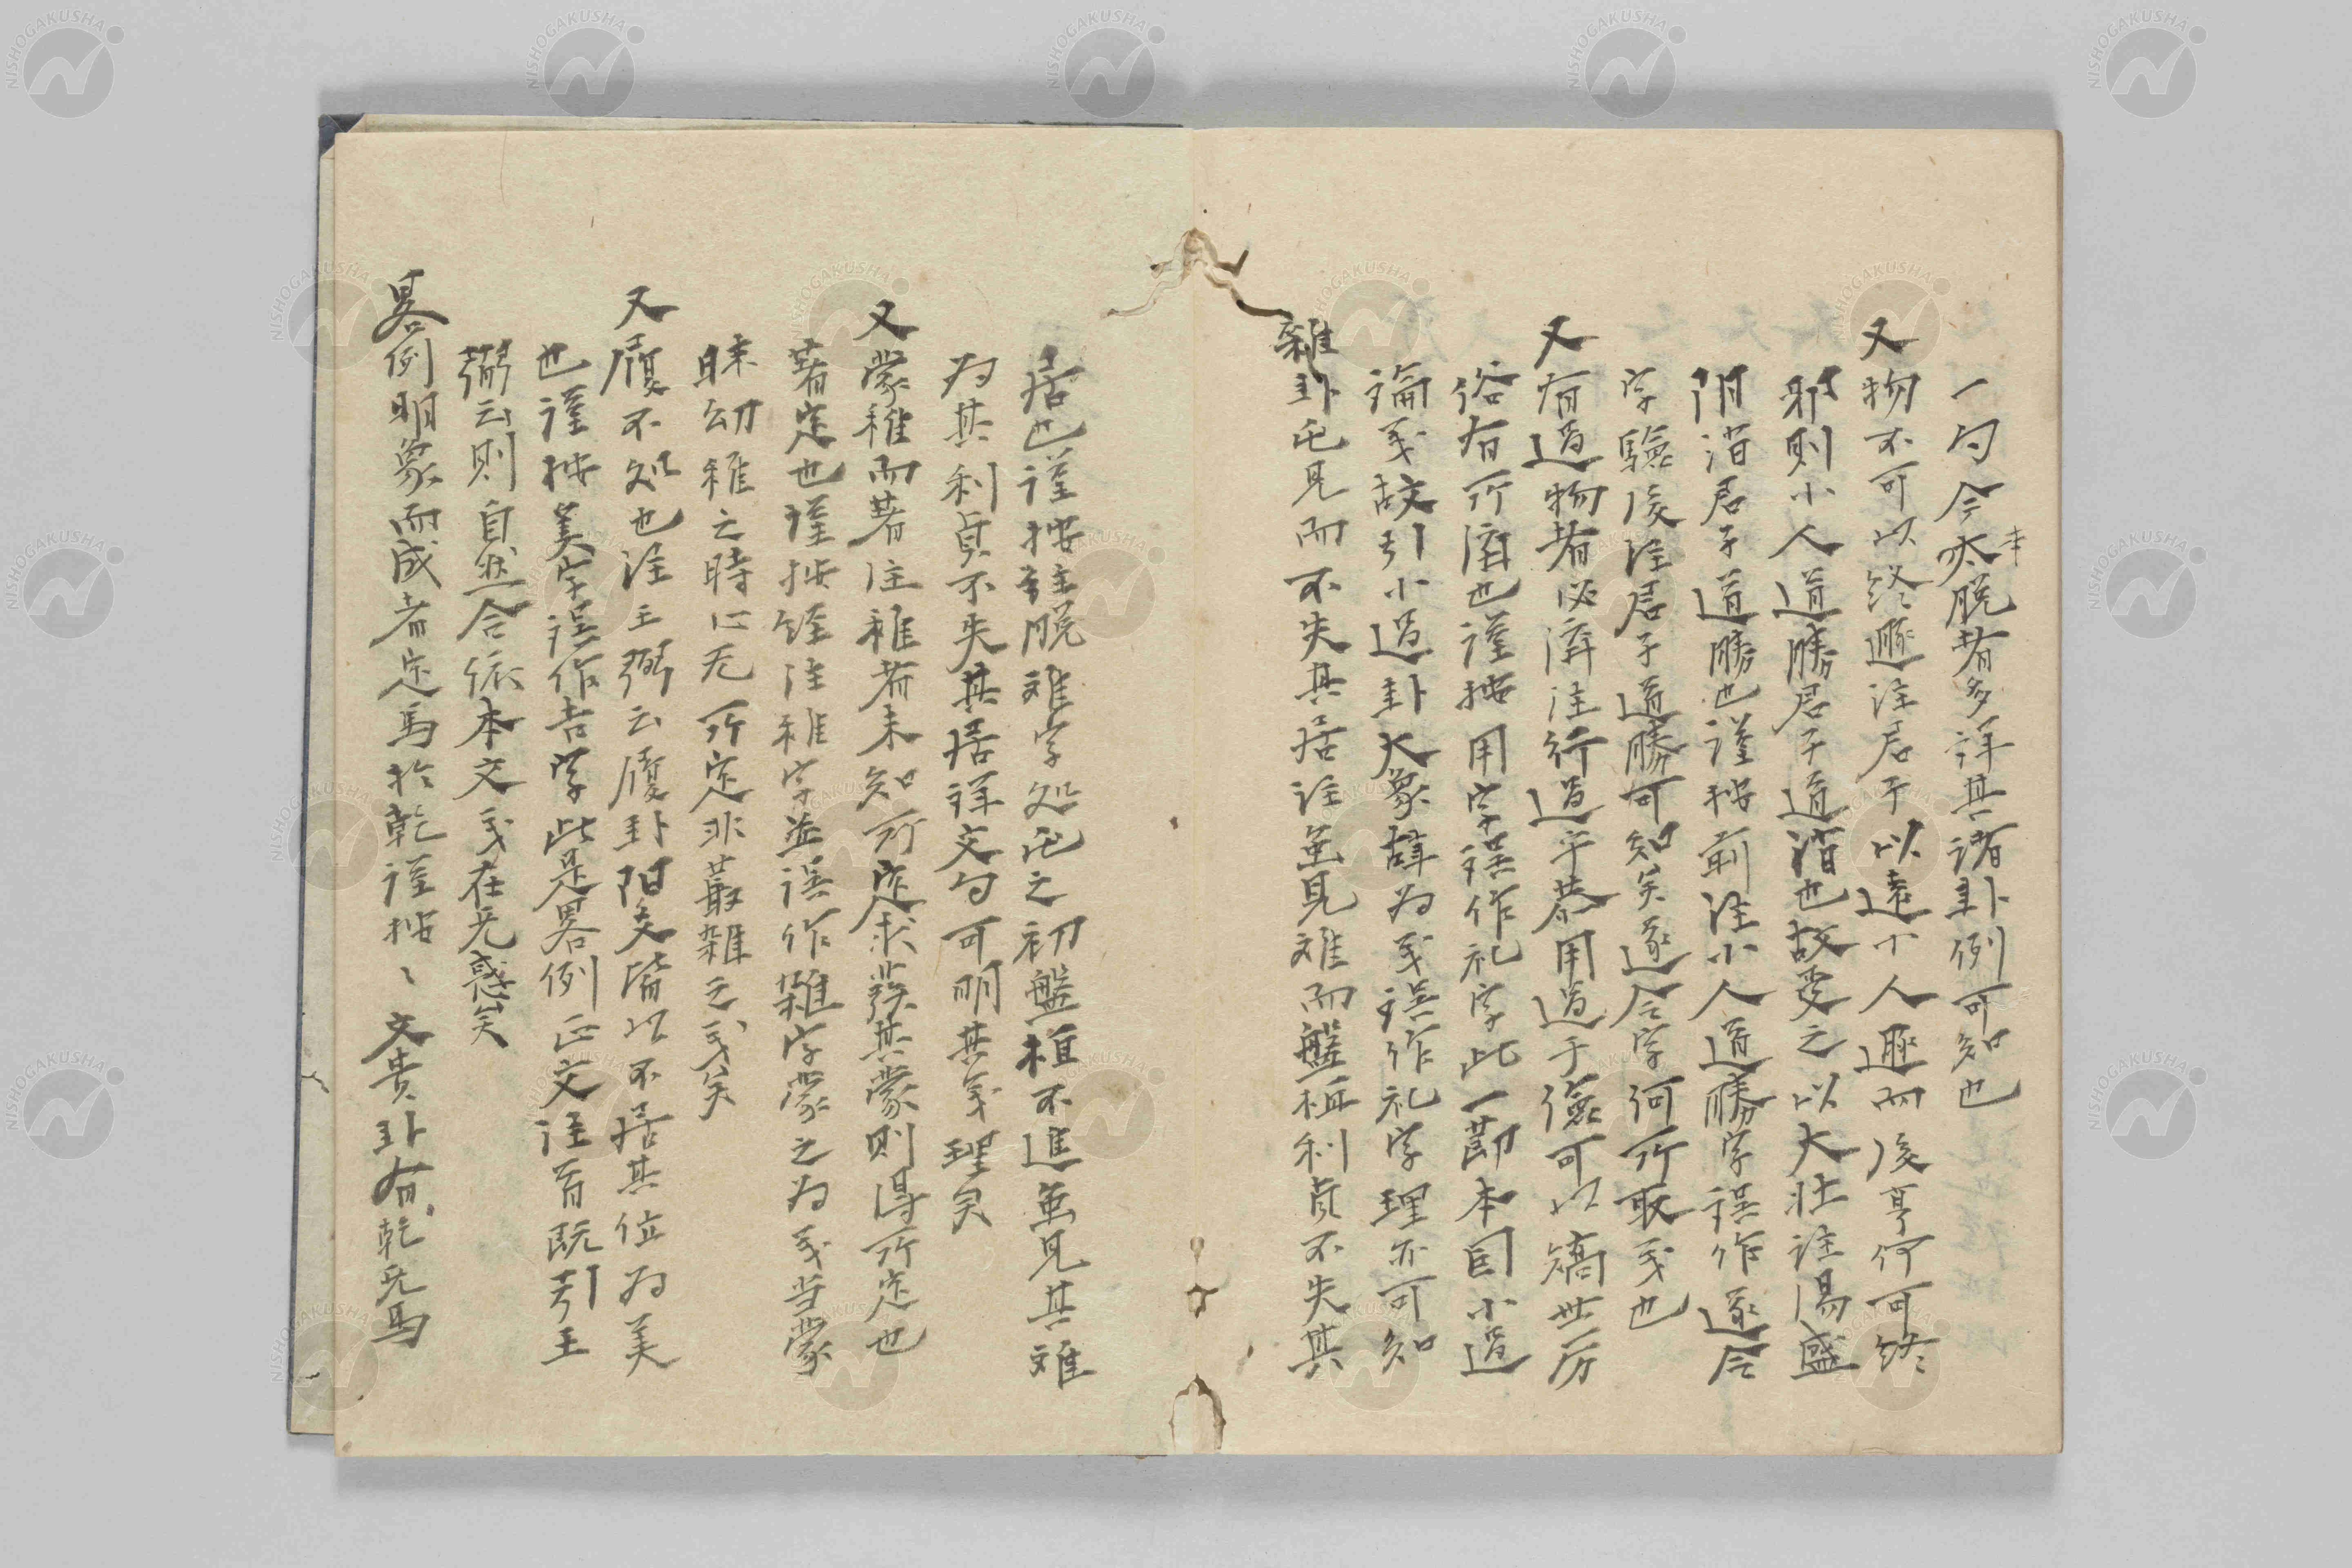 一句今亦脱者多詳其諸卦例可知也
又物不可以終遯注君子以遠小人遯而後亨何可終
邪則小人道勝君子道消也故受之以大壮注陽盛
阴消君子道勝也謹按前注小人道勝字誤作遂合
字驗後注君子道勝可知矣遂合字何所取义也
又有過物者必濟注行過乎恭用過于儉可以矯世厉
俗有所濟也謹按用字誤作礼字此一莭本因小過
論义故引小過卦大象辞为义誤作礼字理亦可知
雜卦屯見而不失其居注虽見难而盤桓利貞不失其
居也謹按註脱难字処屯之初盤桓不進虽見其难
为其利貞不失其居詳文句可明其义理矣
又蒙稚而著注稚者未知所定求發其蒙則得所定也
著定也謹按経注稚字並誤作雜字蒙之为义当蒙
昧幼稚之時心无所定非蕞雜之义矣
又履不処也注王弼云履卦阳爻皆以不居其位为美
也謹按美字誤作吉字此是畧例正文注首既引王
弼云則自然合依本文义在无惑矣
畧例明象而或者定馬於乾謹按、文责卦有乾无馬